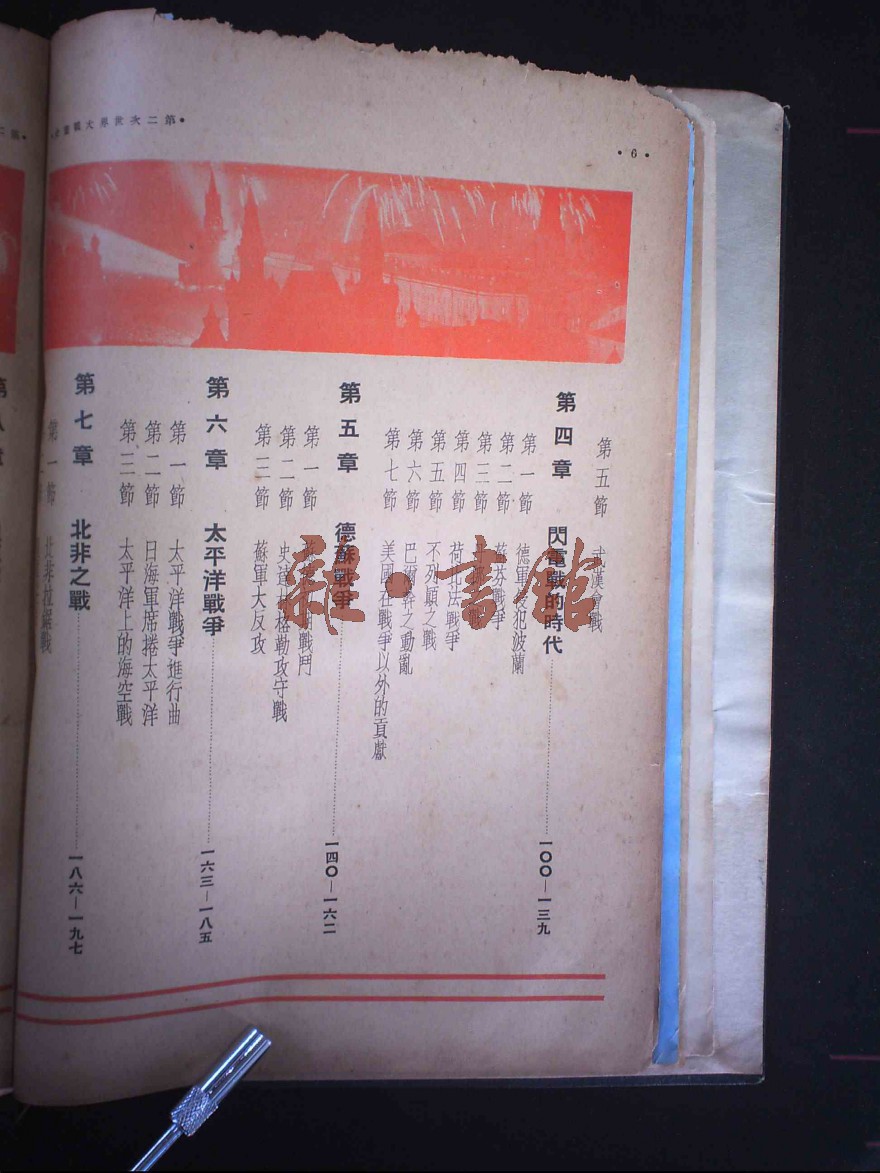 •第二次世界大戰畫史•
• 6 •
第五節 武漢會戰
第四章 閃電戰的時代 一〇〇—一三九
第一節 德軍侵犯波蘭
第二節 蘇芬戰爭
第三節
第四節 荷比法戰爭
第五節 不列顛之戰
第六節 巴爾幹之動亂
第七節 美國在戰爭以外的貢獻
第五章 德蘇戰爭 一四〇—一六二
第一節 戰鬥
第二節 史達林格勒攻守戰
第三節 蘇軍大反攻
第六章 太平洋戰爭 一六三—一八五
第一節 太平洋戰爭進行曲
第二節 日海軍席捲太平洋
第三節 太平洋上的海空戰
第七章 北非之戰 一八六—一九七
第一節 北非拉鋸戰
第八章
雜·書館